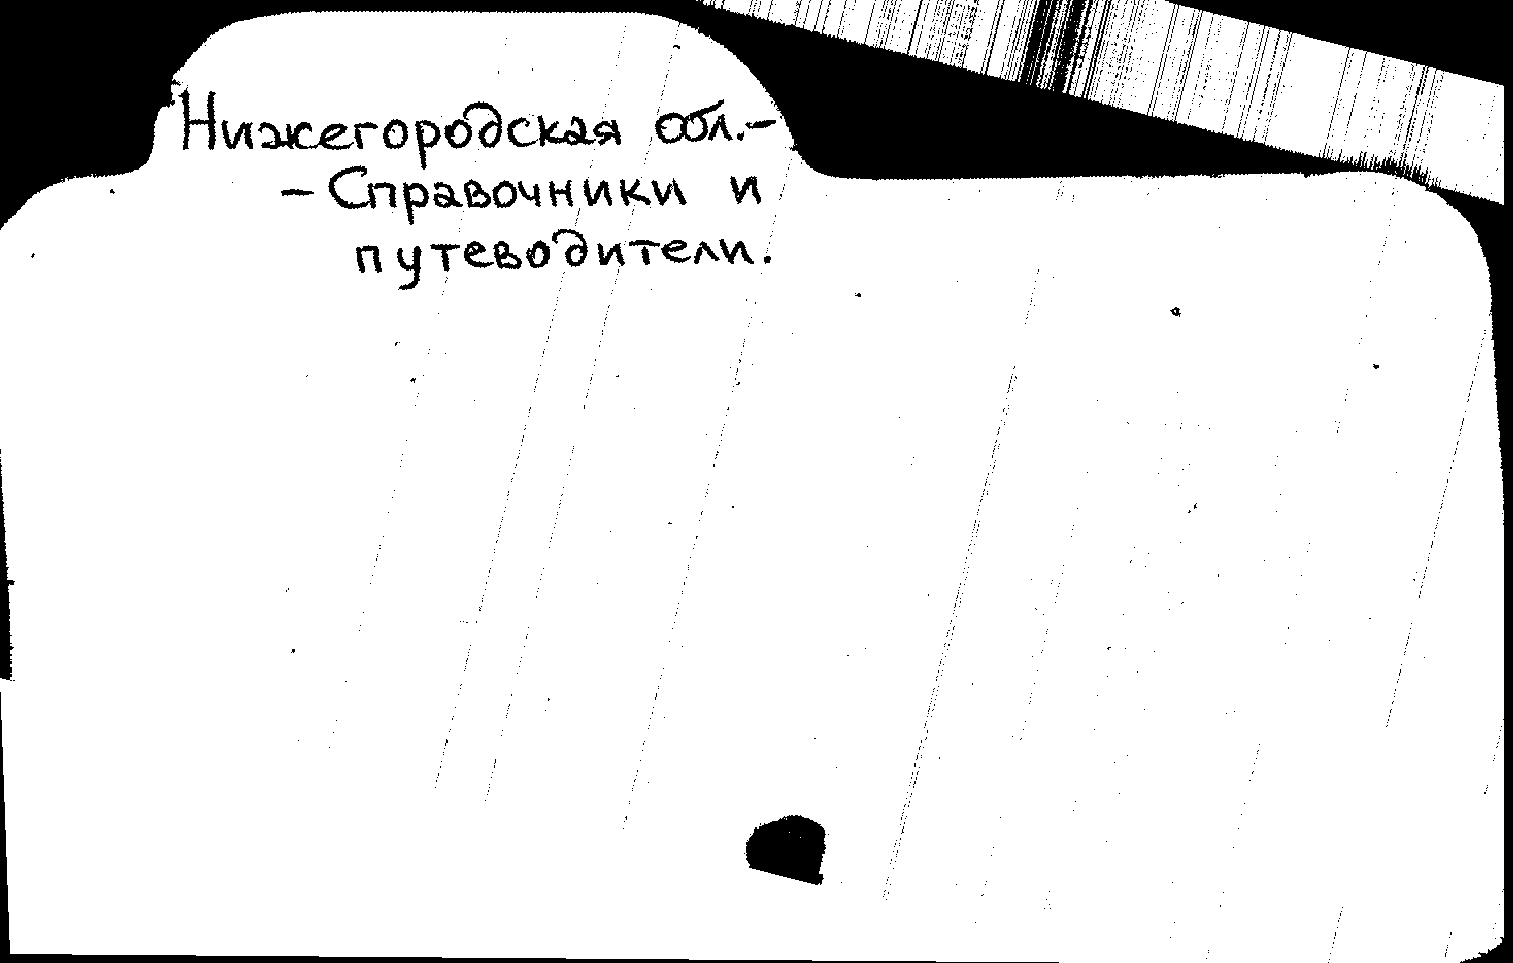 Нижегородская обл.-
- Справочники и
путеводители.